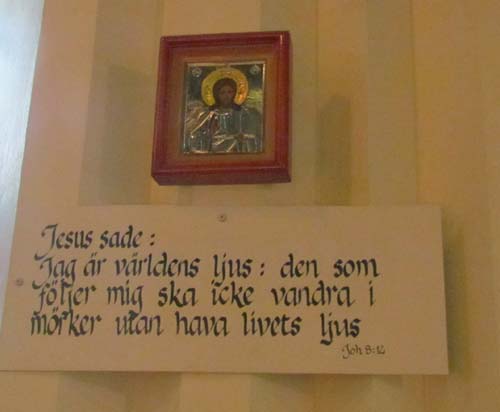 Jesus sade:
Jag är världens ljus: den som
följer mig ska icke vandra i
mörker utan hava livets ljus
Joh 8:12